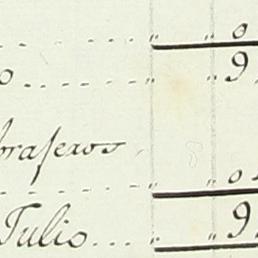 0
o ..... " " 9
braseros
" " 0
Julio... " " 9